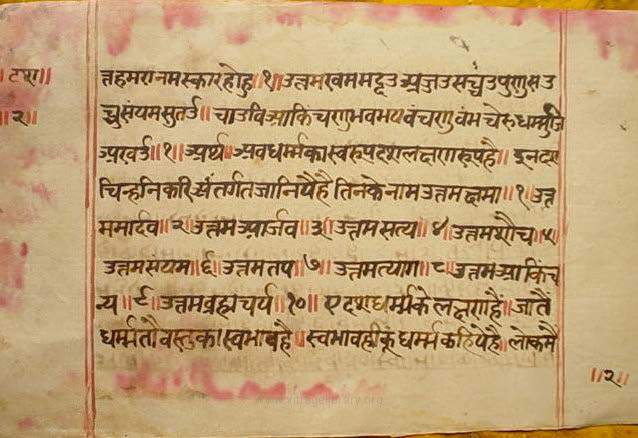 त्तहमरानमस्कारहोहु॥१॥उत्तमखममद्दउअज्जउसच्चउपुणुसउ
च्चुसंयमसुतउ॥चाउविआकिंचणुभवभयवंचणुवंमचेरुधम्मुजि
अखउ॥१॥अर्थ॥अवधर्म्मकास्वरूपदशलक्षणरूपहै॥इनदश
चिन्हनिकरिअंतर्गतजानियैहैतिनकेनामउत्तमक्षमा॥१॥उत्त
ममार्दव॥२॥उत्तमआर्जव॥३॥उत्तमसत्य॥४॥उत्तमशौच॥५
उत्तमसंयम॥६॥उत्तमतप॥७॥उत्तमत्याग॥८॥उत्तमआकिंच
न्य॥९॥उत्तमब्रह्मचर्य॥१०॥एदशधर्म्मकेलक्षणहै॥जातै
धर्म्मतौवस्तुकास्वभावहै॥स्वभावहीकूंधर्म्मकहियेहै॥लोकमै
॥२॥
॥२